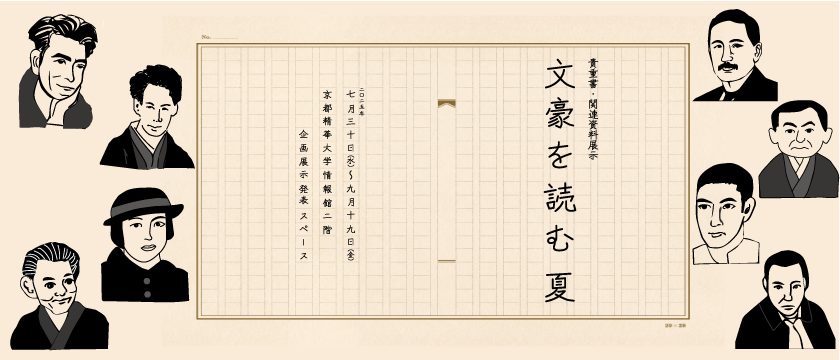 No.
貴重書・関連資料展示
文豪を読む夏
二〇二五年
七月三十日(水)〜九月十九日(金)
京都精華大学情報館二階
企画展示発表スペース